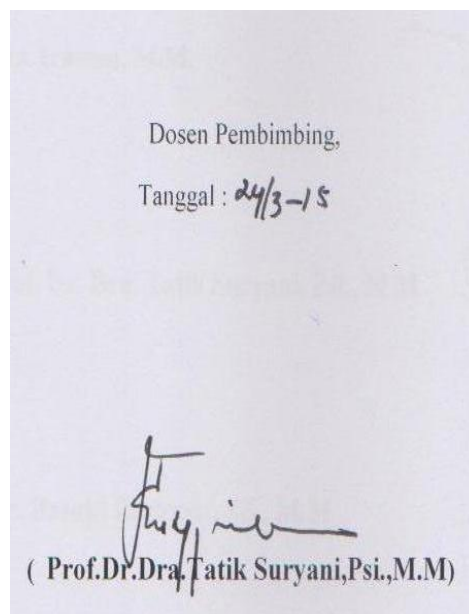 Dosen Pembimbing,
Tanggal : 24/3-15
( Prof.Dr.Dra.Tatik Suryani,Psi.,M.M)